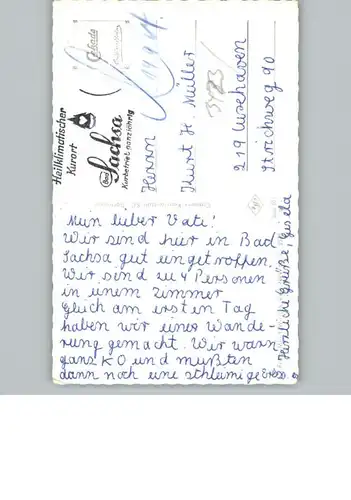 Heilklimatischer
Kurort
Bad Sachsa
Kurbetrieb ganzjährig
Herrn
Kurt H. Müller
219 Cuxhaven
Strichweg 90
Mein lieber Vati!
Wir sind hier in Bad
Sachsa gut eingetroffen.
Wir sind zu 4 Personen
in einem Zimmer
Gleich am ersten Tag
haben wir eine Wande-
rung gemacht. Wir warn
ganz KO und mußten
dann noch eine schleimige
Herzliche Grüße, Gisela